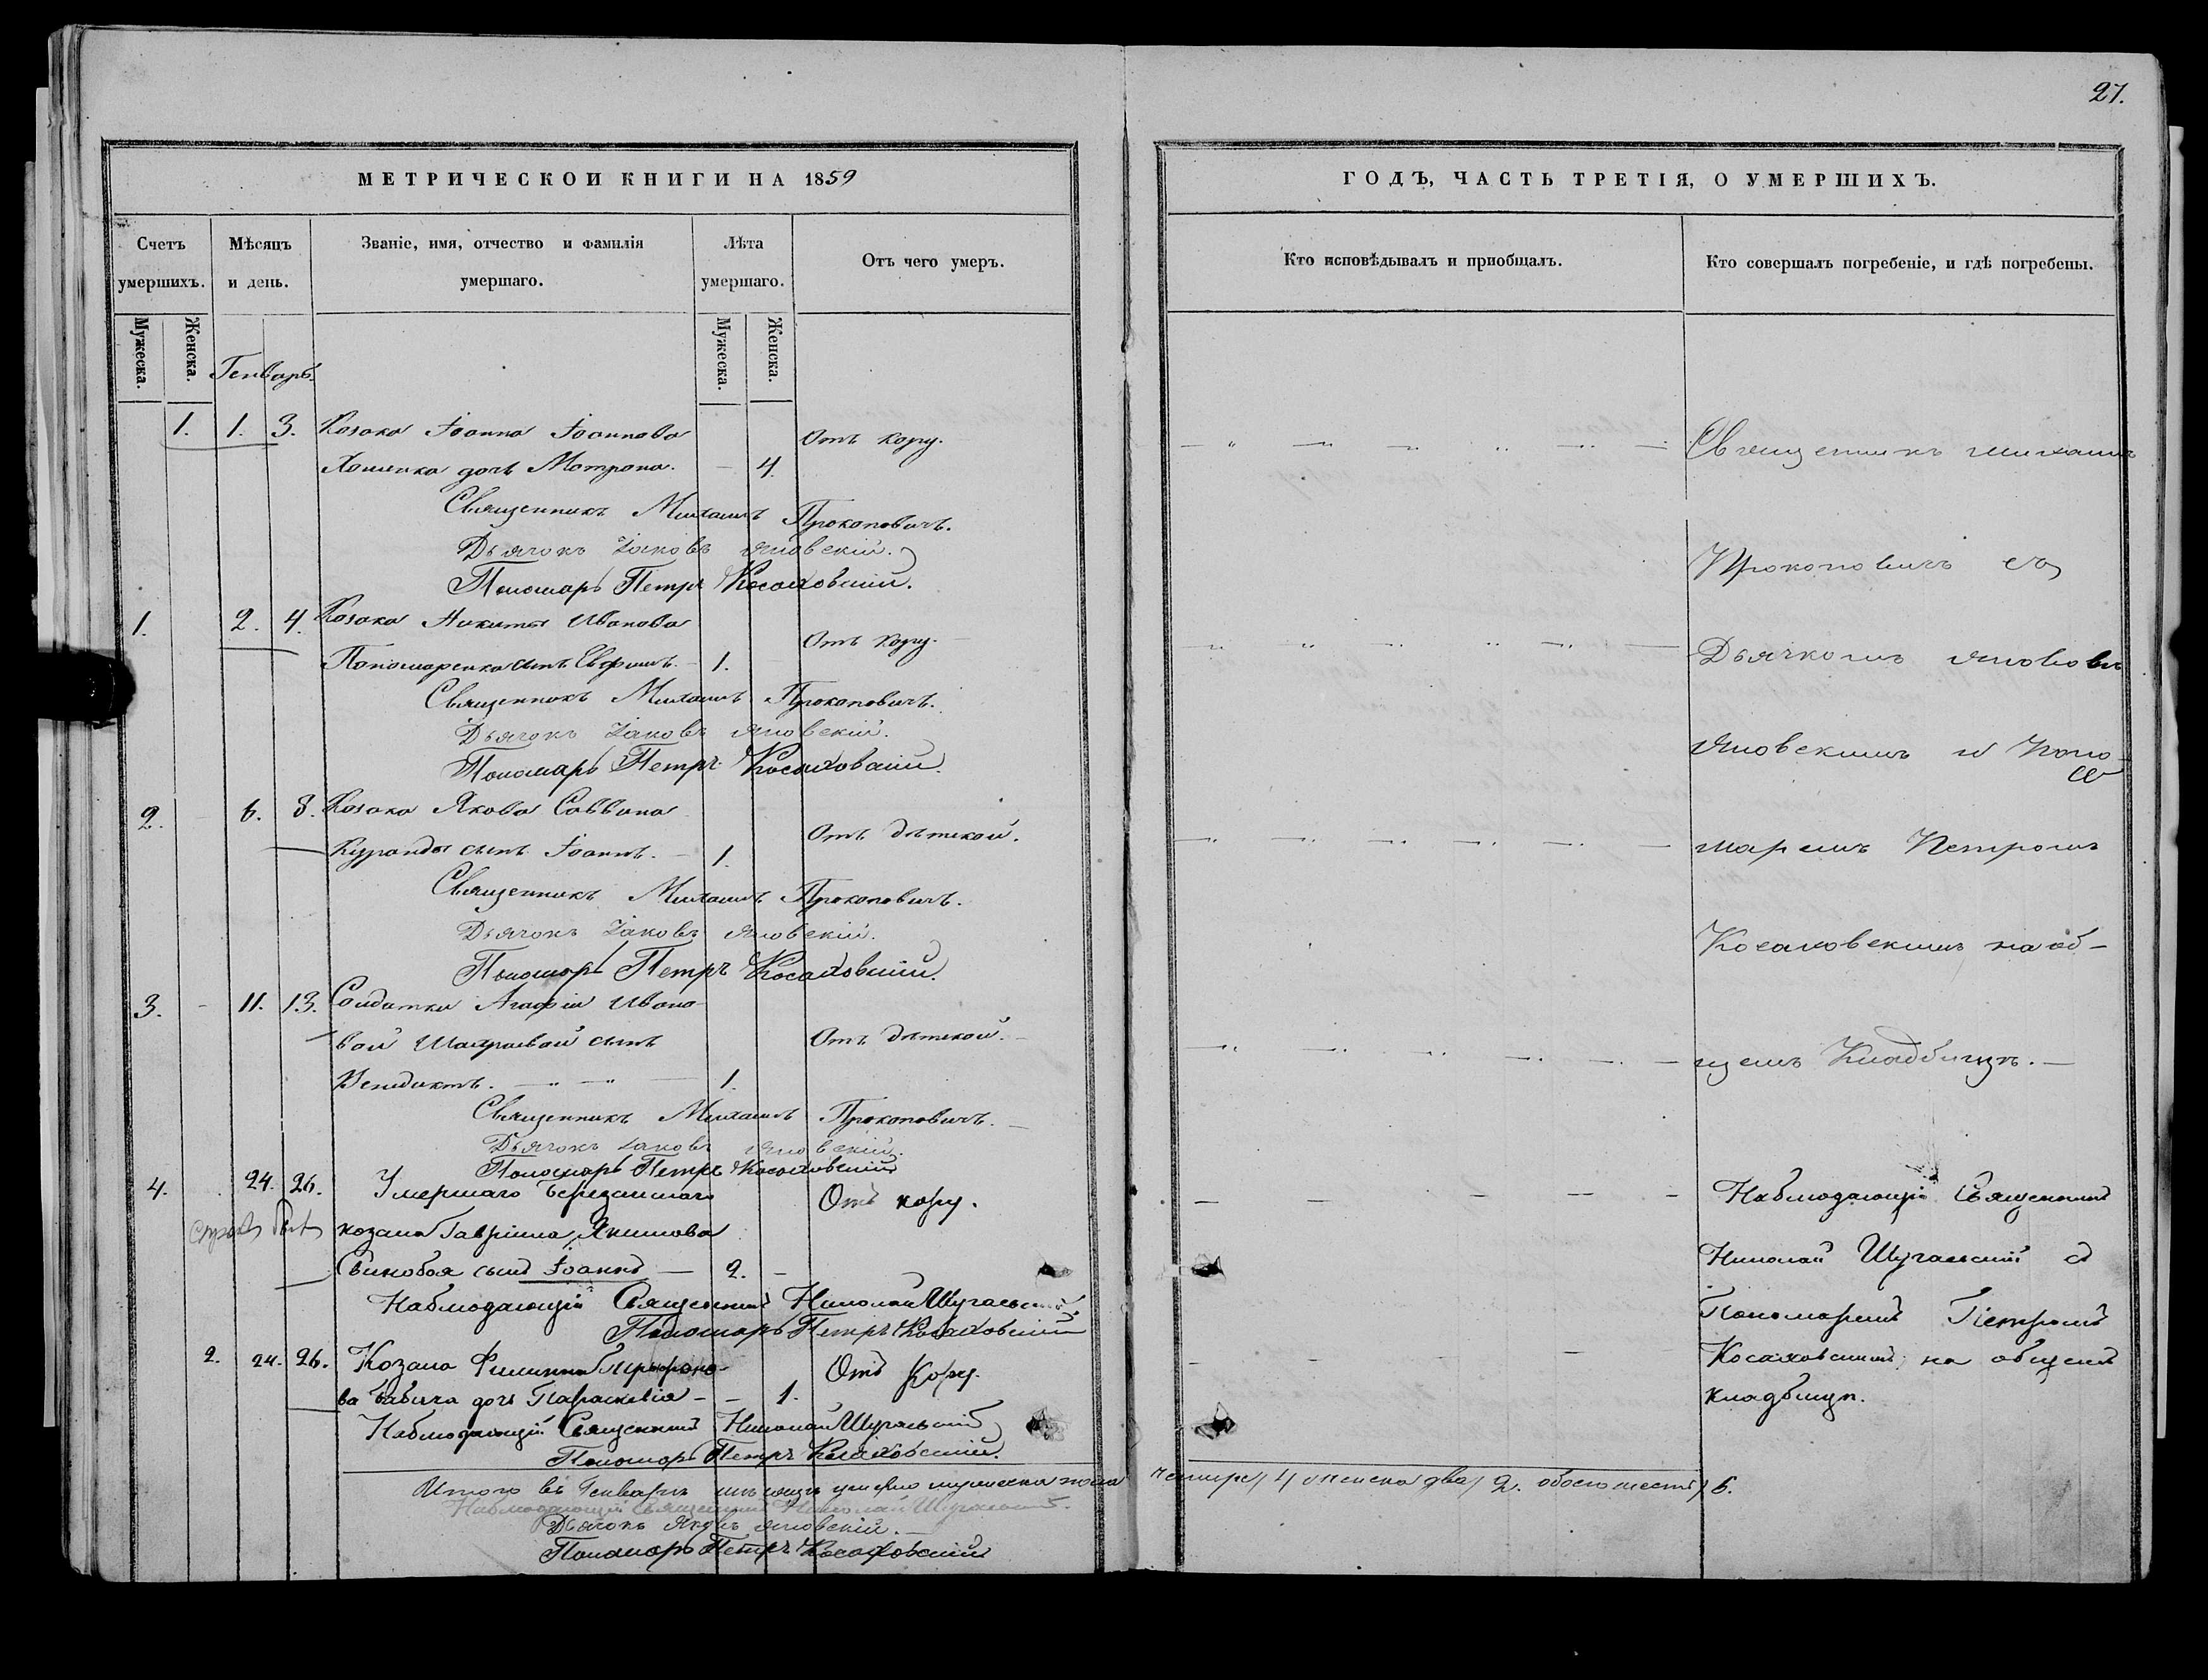 27.
МЕТРИЧЕСКОИ КНИГИ НА 1859
ГОДЪ, ЧАСТЬ ТРЕТІЯ, О УМЕРШИХЪ.
Счетъ умершихъ.
Мѣсяцъ и день.
Званіе, имя, отчество и фамилія умершаго.
Лѣта умершаго.
Отъ чего умеръ.
Кто исповѣдывалъ и приобщалъ.
Кто совершалъ погребеніе, и гдѣ погребены.
Мужеска. Женска.
Мужеска. Женска.
Генварь.
1. 1. 3. Козака Іоанна Іоаннова Отъ кору.
Хоменка дочь Мотрона. — 4.
Священникъ Михаилъ Прокоповичъ.
Дьячокъ Іаковъ Яновскій.
Пономарь Петръ Косаховскій.
1. 2. 4. Козака Никиты Иванова Отъ кору.
Пономаренка сынъ Евфимъ. — 1.
Священникъ Михаилъ Прокоповичъ.
Дьячокъ Іаковъ Яновскій.
Пономарь Петръ Косаховскій.
2. 6. 8. Козака Якова Саввина
Отъ дѣтской.
Куранды сынъ Іоаннъ. — 1.
Священникъ Михаилъ Прокоповичъ.
Дьячокъ Іаковъ Яновскій.
Пономарь Петръ Косаховскій.
3. - 11. 13. Солдатки Агафіи Ивано-
вой сынъ Отъ дѣтской.
1.
Священникъ Михаилъ Прокоповичъ.
Дьячокъ Іаковъ Яновскій.
Пономарь Петръ Косаховскій
4. 24. 26. Умершаго Отъ кору.
козака Гавріила Якимова
Свинобоя сынъ Іоаннъ — 2. -
Наблюдающій Священникъ Николай
Пономарь Петръ Косаховскій
2. 24. 26. Козака Филиппа Отъ кору.
ва Бабича дочь Параскевія - - 1.
Наблюдающій Священникъ Николай
Пономарь Петръ Косаховскій.
Итого въ Генварѣ мѣсяцѣ умерло мужеска пола четыре, 4 женска два, 2. обоего шесть, 6.
Наблюдающій Священникъ Николай
Дьячокъ Яковъ Яновскій.
Пономарь Петръ Косаховскій
Священникъ Михаилъ
Прокоповичъ съ
Дьячкомъ
Яновскимъ и Поно-
маремъ Петромъ
Косаховскимъ на об-
щемъ Кладбищѣ. —
Наблюдающій Священникъ
Николай съ
Пономаремъ Петромъ
Косаховскимъ, на общемъ
кладбищѣ.